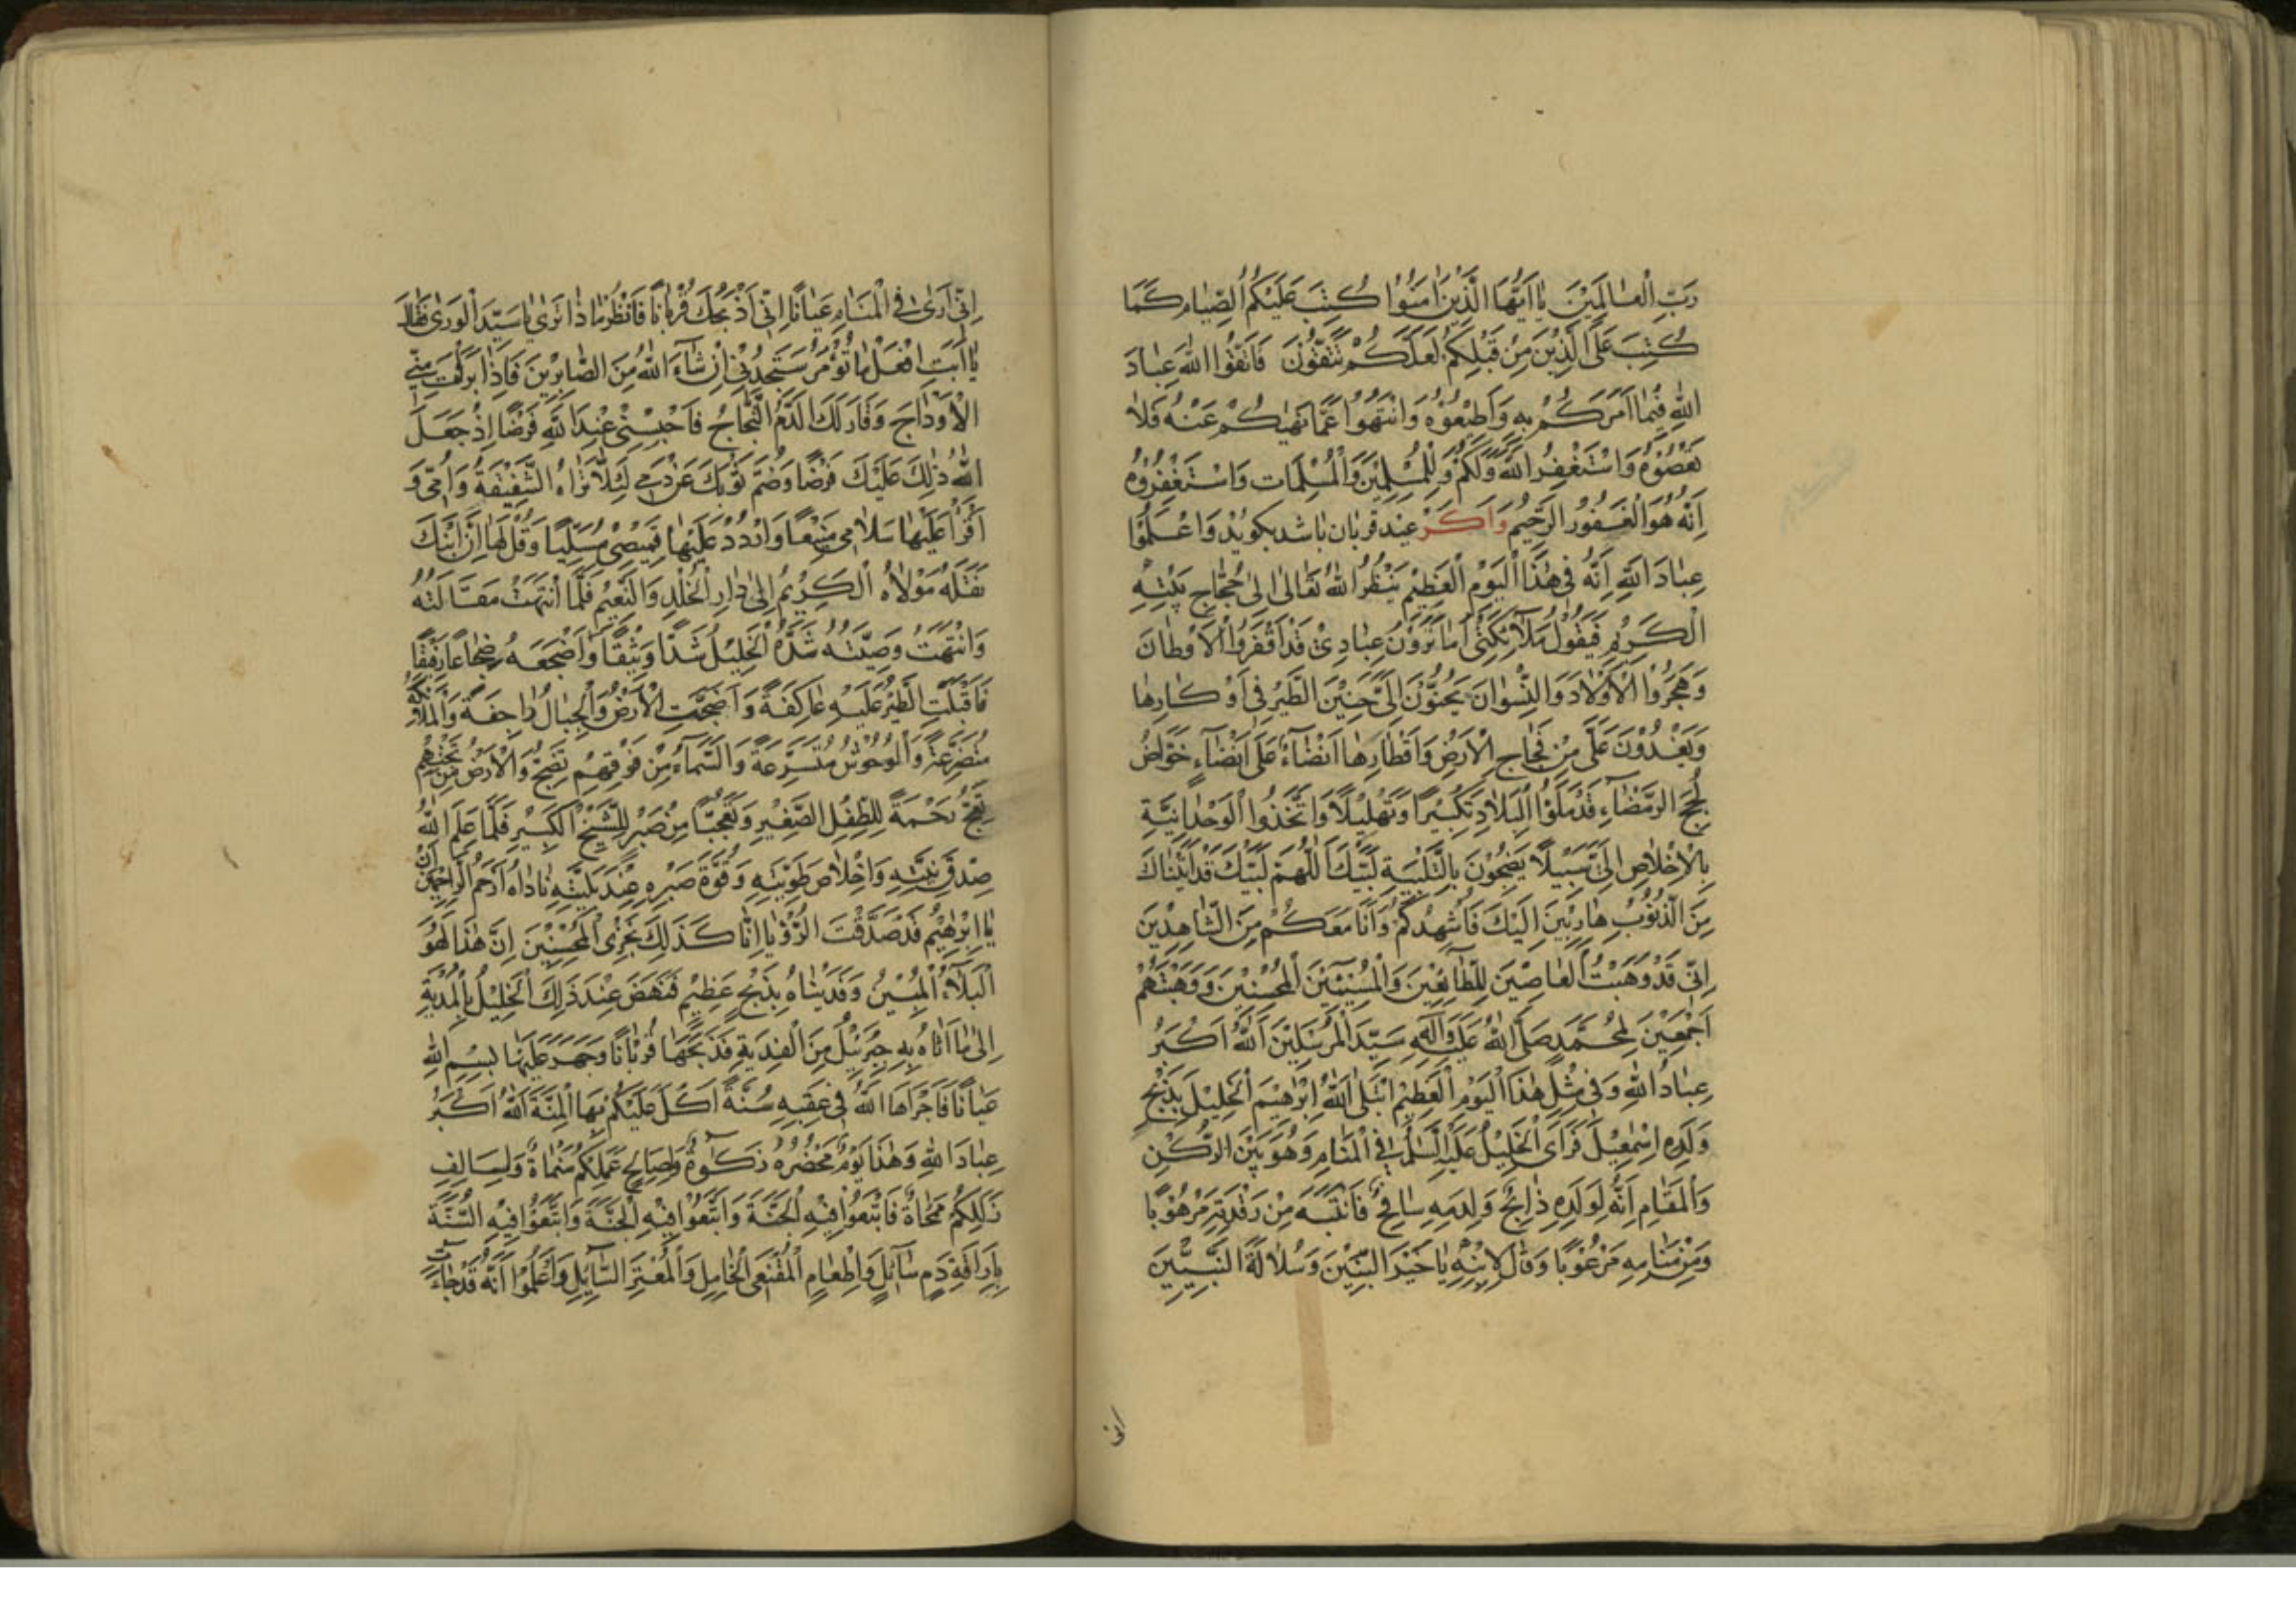 رَبِّ الْعٰالَمِيْنَ يٰا اَيُّهَا الَّذِيْنَ اٰمَنُوْا كُتِبَ عَلَيْكُمُ الصِّيٰامُ كَمٰا
كُتِبَ عَلَى الَّذِيْنَ مِنْ قَبْلِكُمْ لَعَلَّكُمْ تَتَّقُوْنَ فَاتَّقُوا اللهَ عِبٰادَ
اللهِ فِيْمٰا اَمَرَكُمْ بِهِ وَاَطِيْعُوْهُ وَانْتَهُوْا عَمّٰا نَهٰيكُمْ عَنْهُ فَلاٰ
تَعْصُوْهُ وَاسْتَغْفِرُ اللهَ وَلَكُمْ وَلِلْمُسْلِمِيْنَ وَالْمُسْلِمٰات وَاسْتَغْفِرُوْهُ
اِنَّهُ هُوَ الْغَفُوْرُ الرَّحِيْمُ وَاَكَرْ عِيْد قربان باشد بكويد وَاعْلَمُوْا
عِبٰادَ اللهِ اَنَّهُ فِى هٰذَا الْيَوْمِ الْعَظِيْمِ يَنْظُرُ اللهُ تَعٰالىٰ اِلىٰ حُجّٰاجِ بَيْتِهِ
الْكَرِيْمِ فَيَقُوْلُ مَلآئِكَتِىْ اَمٰا تَرَوْنَ عِبٰادِىْ قَدْ اَقْفَرُوا الْاَوْطٰانَ
وَهَجَرُوا الْاَوْلاٰدَ وَالنِّسْوٰانَ يَحِنُّوْنَ اِلَىَّ حَنِيْنَ الطَّيْرِ فِى اَوْكٰارِهٰا
وَيَفِدُوْنَ عَلَىَّ مِنْ فِجٰاجِ الْاَرْضِ وَاَقْطٰارِهٰا اَنْضٰآءً عَلىٰ اَنْضٰآءٍ خَوّٰاضُ
لُجَجِ الرَّمْضٰآءِ قَدْ مَلَؤُا الْبِلاٰدَ تَكْبِيْرًا وَتَهْلِيْلًا وَاتَّخَذُوا الْوَحْدٰانِيَّةِ
بِالْاِخْلاٰصِ اِلَىَّ سَبِيْلًا يَضِجُّوْنَ بِالتَّلْبِيَةِ لَبَّيْكَ اَللّٰهُمَّ لَبَّيْكَ قَدْ اَتَيْنٰاكَ
مِنَ الذُّنُوْبِ هٰارِبِيْنَ اِلَيْكَ فَاُشْهِدُكُمْ وَاَنَا مَعَكُمْ مِنَ الشّٰاهِدِيْنَ
اِنِّى قَدْ وَهَبْتُ الْعٰاصِيْنَ لِلطّٰائِعِيْنَ وَالْمُسِيْئِيْنَ لِلْمُحْسِنِيْنَ وَوَهَبْتُهُمْ
اَجْمَعِيْنَ لِمُحَمَّدٍ صَلَّى اللهُ عَلَيْهِ وَآلِهِ سَيِّدِ الْمُرْسَلِيْنَ اَللهُ اَكْبَرُ
عِبٰادَ اللهِ وَفِى مِثْلِ هٰذَا الْيَوْمِ الْعَظِيْمِ ابْتَلَى اللهُ اِبْرٰهِيْمَ الْخَلِيْلَ بِذَبْحِ
وَلَدِهِ اِسْمٰعِيْلَ فَرَاَى الْخَلِيْلُ عَلَيْهِ السَّلٰمُ فِى الْمَنٰامِ وَهُوَ بَيْنَ الرُّكْنِ
وَالْمَقٰامِ اَنَّهُ لِوَلَدِهِ ذٰابِحٌ وَلِدَمِهِ سٰافِحٌ فَانْتَبَهَ مِنْ رَقْدَتِهِ مَرْهُوْبًا
وَمِنْ مَنٰامِهِ مَرْعُوْبًا وَقٰالَ لِابْنِهِ يٰا خَيْرَ الْبَنِيْنَ وَسُلاٰلَةَ النَّبِيِّيْنَ
انى
اِنِّى اَرٰى فِى الْمَنٰامِ عَيٰانًا اِنِّى اَذْبَحُكَ قُرْبٰانًا فَانْظُرْ مٰاذٰا تَرٰى يٰا سَيِّدَ الْوَرٰى فَقٰالَ
يٰا اَبَتِ افْعَلْ مٰا تُؤْمَرُ سَتَجِدُنِىْ اِنْ شٰآءَ اللهُ مِنَ الصّٰابِرِيْنَ فَاِذٰا بَرَأْتَ مِنِّى
الْاَوْدٰاجَ وَفٰارَ لَكَ الدَّمُ الثَّجّٰاجُ فَاحْبِسْنِىْ عِنْدَ اللهِ فَرَضًا اِذْ جَعَلَ
اللهُ ذٰلِكَ عَلَيْكَ فَرْضًا وَضُمَّ ثَوْبَكَ عَنْ دَمِى لِئَلّاٰ تَرٰاهُ الشَّفِيْقَةُ وَاُمِّى وَ
اقْرَأْ عَلَيْهٰا سَلاٰمِى وَارْدُدْ عَلَيْهٰا قَمِيْصِى مُسَلِّيًا وَقُلْ لَهٰا اِنَّ ابْنَكَ
نَقَلَهُ مَوْلاٰهُ الْكَرِيْمُ اِلىٰ دٰارِ الْخُلْدِ وَالنَّعِيْمِ فَلَمّٰا انْتَهَتْ مَقٰالَتُهُ
وَانْتَهَتْ وَصِيَّتُهُ شَدَّهُ الْخَلِيْلُ شَدًّا وَثِيْقًا وَاَضْجَعَهُ ضِجٰاعًا رَفِيْقًا
فَاَقْبَلَتِ الطَّيْرُ عَلَيْهِ عٰاكِفَةً وَاَضْحَتِ الْاَرْضُ وَالْجِبٰالُ رٰاجِفَةً وَالْمَلآئِكَةُ
مُتَضَرِّعَةً وَالْوُحُوْشُ مُتَسَرِّعَةً وَالسَّمٰآءُ مِنْ فَوْقِهِمْ تَضِجُّ وَالْاَرْضُ مِنْ تَحْتِهِمْ
تَعِجُّ رَحْمَةً لِلطِّفْلِ الصَّغِيْرِ وَتَعَجُّبًا مِنْ صَبْرِ الشَّيْخِ الْكَبِيْرِ فَلَمّٰا عَلِمَ اللهُ
صِدْقَ نِيَّتِهِ وَاِخْلاٰصَ طَوِيَّتِهِ وَقُوَّةَ صَبْرِهِ عِنْدَ بَلِيَّتِهِ نٰادٰاهُ اَرْحَمُ الرّٰاحِمِيْنَ اَنْ
يٰا اِبْرٰهِيْمُ قَدْ صَدَّقْتَ الرُّؤْيٰا اِنّٰا كَذَلِكَ نَجْزِى الْمُحْسِنِيْنَ اِنَّ هٰذٰا لَهُوَ
الْبَلآءُ الْمُبِيْنُ وَفَدَيْنٰاهُ بِذِبْحٍ عَظِيْمٍ فَنَهَضَ عِنْدَ ذَلِكَ الْخَلِيْلُ بِالْمُدْيَةِ
اِلىٰ مٰا اَتٰاهُ بِهِ جِبْرَئِيْلُ مِنَ الْفِدْيَةِ فَذَبَحَهٰا قُرْبٰانًا وَجَهَرَ عَلَيْهٰا بِسْمِ اللهِ
عَيٰانًا فَاَجْرٰاهَا اللهُ فِى عَقِبِهِ سُنَّةً اَكْمَلَ عَلَيْكُمْ بِهَا الْمِنَّةَ اَللهُ اَكْبَرُ
عِبٰادَ اللهِ وَهٰذٰا يَوْمٌ مَحْضُرُهُ زَكٰوةٌ وَلِصٰالِحِ عَمَلِكُمْ مَنْمٰاةٌ وَلِسٰالِفِ
زَلَلِكُمْ مَمْحٰاةٌ فَابْتَغُوْا فِيْهِ الْجَنَّةَ وَابْتَغُوْا فِيْهِ الْجَنَّةَ وَاتَّبِعُوْا فِيْهِ السُّنَّةَ
بِاِرٰاقَةِ دَمٍ سٰآئِلٍ وَاِطْعٰامِ الْخٰامِلِ وَالْمُعْتَرِّ السّٰآئِلِ وَاعْلَمُوْا اَنَّهُ قَدْ جٰاءَتْ